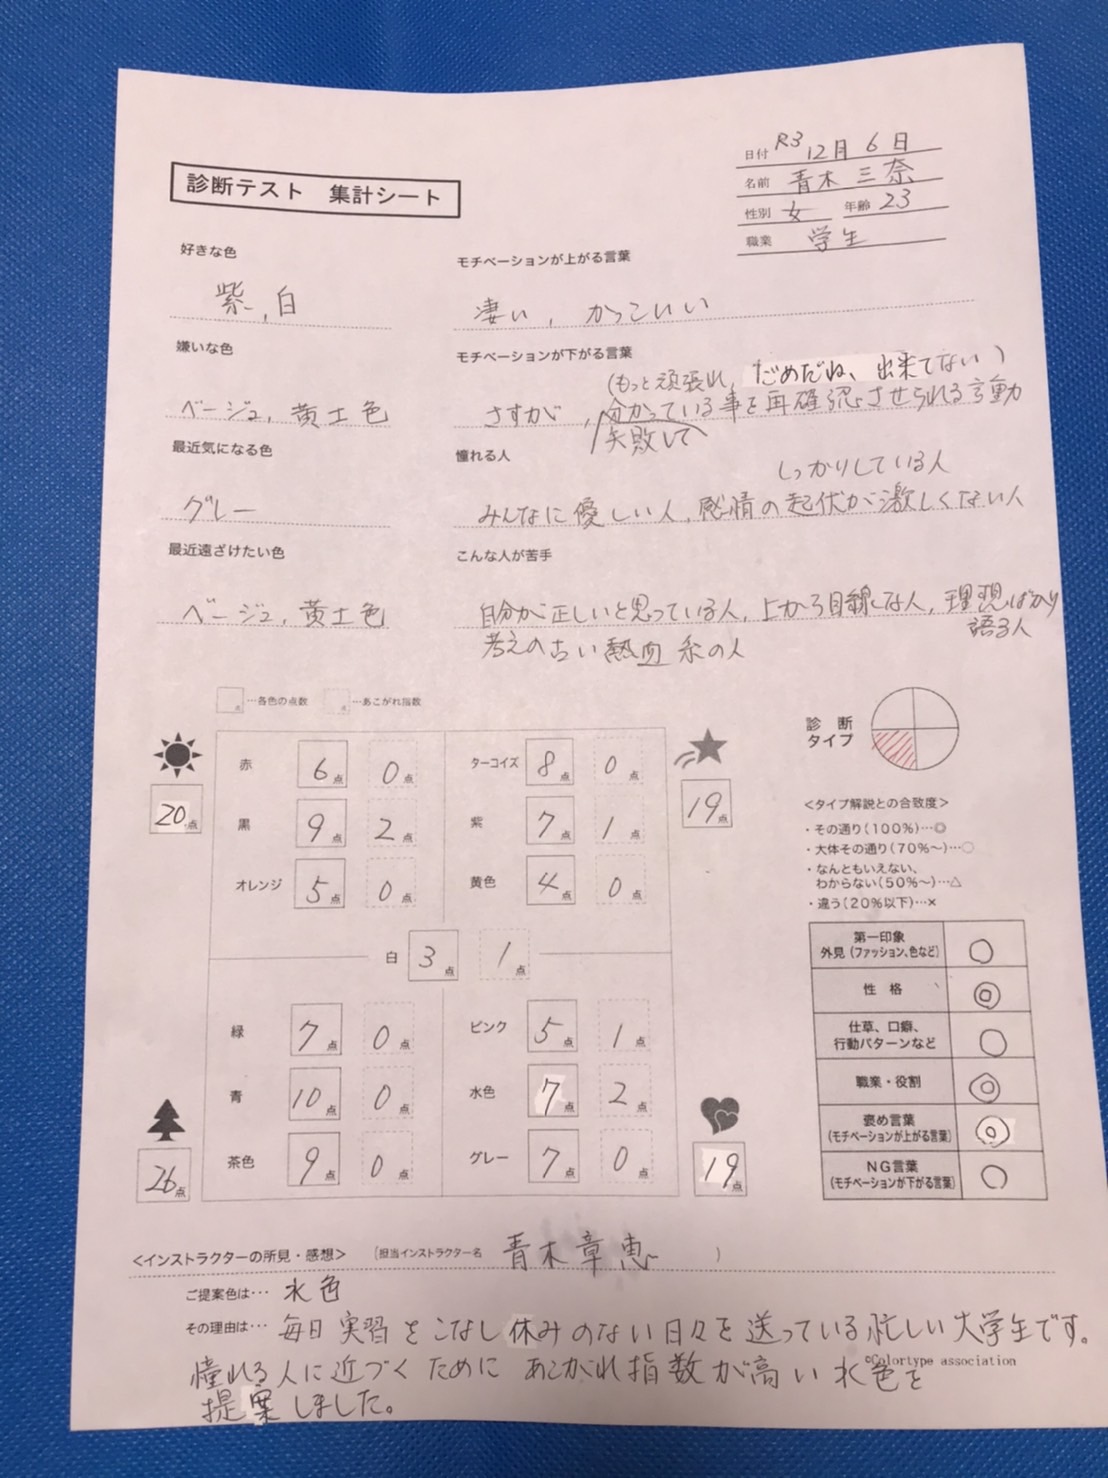 日付 R3 12月 6日
名前 青木 三奈
性別 女 年齢 23
職業 学生
診断テスト 集計シート
好きな色
紫、白
モチベーションが上がる言葉
凄い、かっこいい
嫌いな色
ベージュ、黄土色
モチベーションが下がる言葉
(もっと頑張れ、だめだね、出来てない)
さすが、分かっている事を再確認させられる言動
失敗して
最近気になる色
グレー
憧れる人
しっかりしている人
みんなに優しい人、感情の起伏が激しくない人
最近遠ざけたい色
ベージュ、黄土色
こんな人が苦手
自分が正しいと思っている人、上から目線な人、理想ばかり
語る人
考えの古い熱血系の人
点…各色の点数 点…あこがれ指数
診断
タイプ
赤 6点 0点 ターコイズ 8点 0点
20点 19点
黒 9点 2点 紫 7点 1点
オレンジ 5点 0点 黄色 4点 0点
白 3点 1点
緑 7点 0点 ピンク 5点 1点
青 10点 0点 水色 7点 2点
茶色 9点 0点 グレー 7点 0点
26点 19点
<タイプ解説との合致度>
・その通り(100%)…◎
・大体その通り(70%〜)…○
・なんともいえない、
わからない(50%〜)…△
・違う(20%以下)…×
第一印象
外見(ファッション、色など) ○
性格 ◎
仕草、口癖、
行動パターンなど ○
職業・役割 ◎
褒め言葉
(モチベーションが上がる言葉) ◎
NG言葉
(モチベーションが下がる言葉) ○
<インストラクターの所見・感想> [担当インストラクター名 青木章恵 )
ご提案色は… 水色
その理由は… 毎日実習をこなし休みのない日々を送っている忙しい大学生です。
憧れる人に近づくために あこがれ指数が高い水色を
©Colortype association
提案しました。